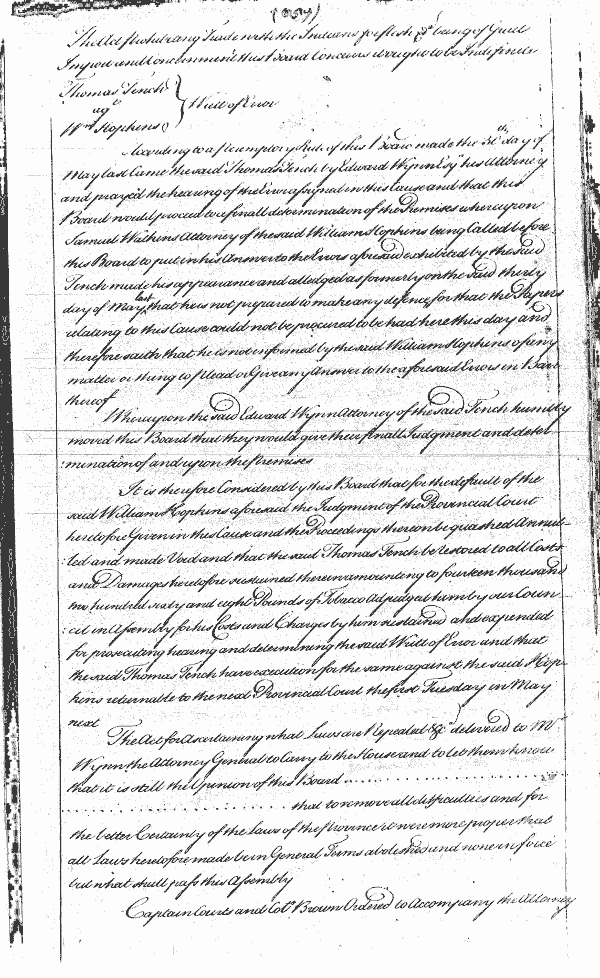 The Act prohibiting Trade with the Indians for flesh &ca being of Great
Import and Concernment this Board Concieves it ought to be Indefinite
Thomas Tench
agt } Writt of Error
Wm Hopkins
According to a Peremptory Rule of this Board made the 30th day of
May last Came the said Thomas Tench by Edward Wynn Esqr his Attorney
and prayed the hearing of the Errors assigned in this Cause and that this
Board would proceed to a finall determination of the Premises whereupon
Samuel Watkins Attorney of the said William Hopkins being Called before
this Board to put in his Answer to the Errors aforesaid exhibited by the said
Tench made his appearance and alledged as formerly on the said thirty
day of May last that he is not prepared to make any defence, for that the Papers
relating to this Cause could not be procured to be had here this day and
therefore saith that he is not informed by the said William Hopkins of any
matter or thing to plead or Give any Answer to the aforesaid Errors in Barr
thereof
Whereupon the said Edward Wynn Attorney of the said Tench humbly
moved this Board that they would give their finall Judgment and deter
:mination of and upon the Premises
It is therefore Considered by this Board that for the default of the
said William Hopkins aforesaid the Judgment of the Provincial Court
heretofore Given in this Cause and the Proceedings thereon be quashed Annul-
:led and made Void and that the said Thomas Tench be restored to all Costs
and Damages heretofore sustained therein amounting to fourteen thousand
two hundred sixty and eight Pounds of Tobacco adjudged him by our Coun-
:cil in Assembly for his Costs and Charges by him sustained and expended
for prosecuting hearing and determining the said Writt of Error and that
the said Thomas Tench have execution for the same against the said Hop-
kins returnable to the next Provincial Court the first Tuesday in May
next
The Act for Ascertaining what Laws are Repealed &ca delivered to Mr
Wynn the Attorney General to Carry to the House and to let them know
that it is still the Opinion of this Board
that to remove all difficulties and for
the better Certainty of the Laws of the Province it were more proper that
all Laws heretofore made be in General Terms abolished and none in force
but what shall pass this Assembly
Captain Courts and Colo Brown Ordered to Accompany the Attorney